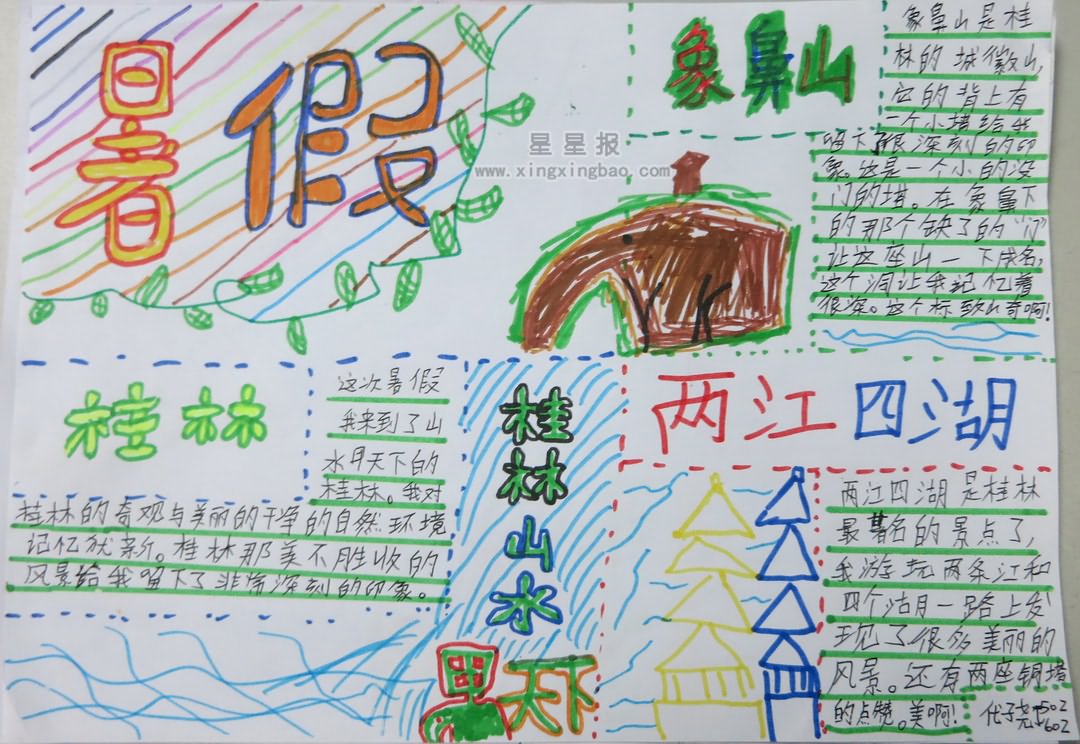 暑假
星星报
www.xingxingbao.com
象鼻山
象鼻山是桂
林的城徽山,
它的背上有
一个小塔给我
留下了很深刻的印
象。这是一个小的没
门的塔。在象鼻下
的那个缺了的“门”
让这座山一下成名,
这个洞让我记忆着
很深。这个标致山奇啊!
桂林
这次暑假
我来到了山
水甲天下的
桂林。我对
桂林的奇观与美丽的干净的自然环境
记忆犹新。桂林那美不胜收的
风景给我留下了非常深刻的印象。
桂林山水
甲天下
两江四湖
两江四湖是桂林
最著名的景点了,
我游玩两条江和
四个沽月一路上发
现了很多美丽的
风景。还有两座铜塔
的点缀。美啊!
代子尧
502
602